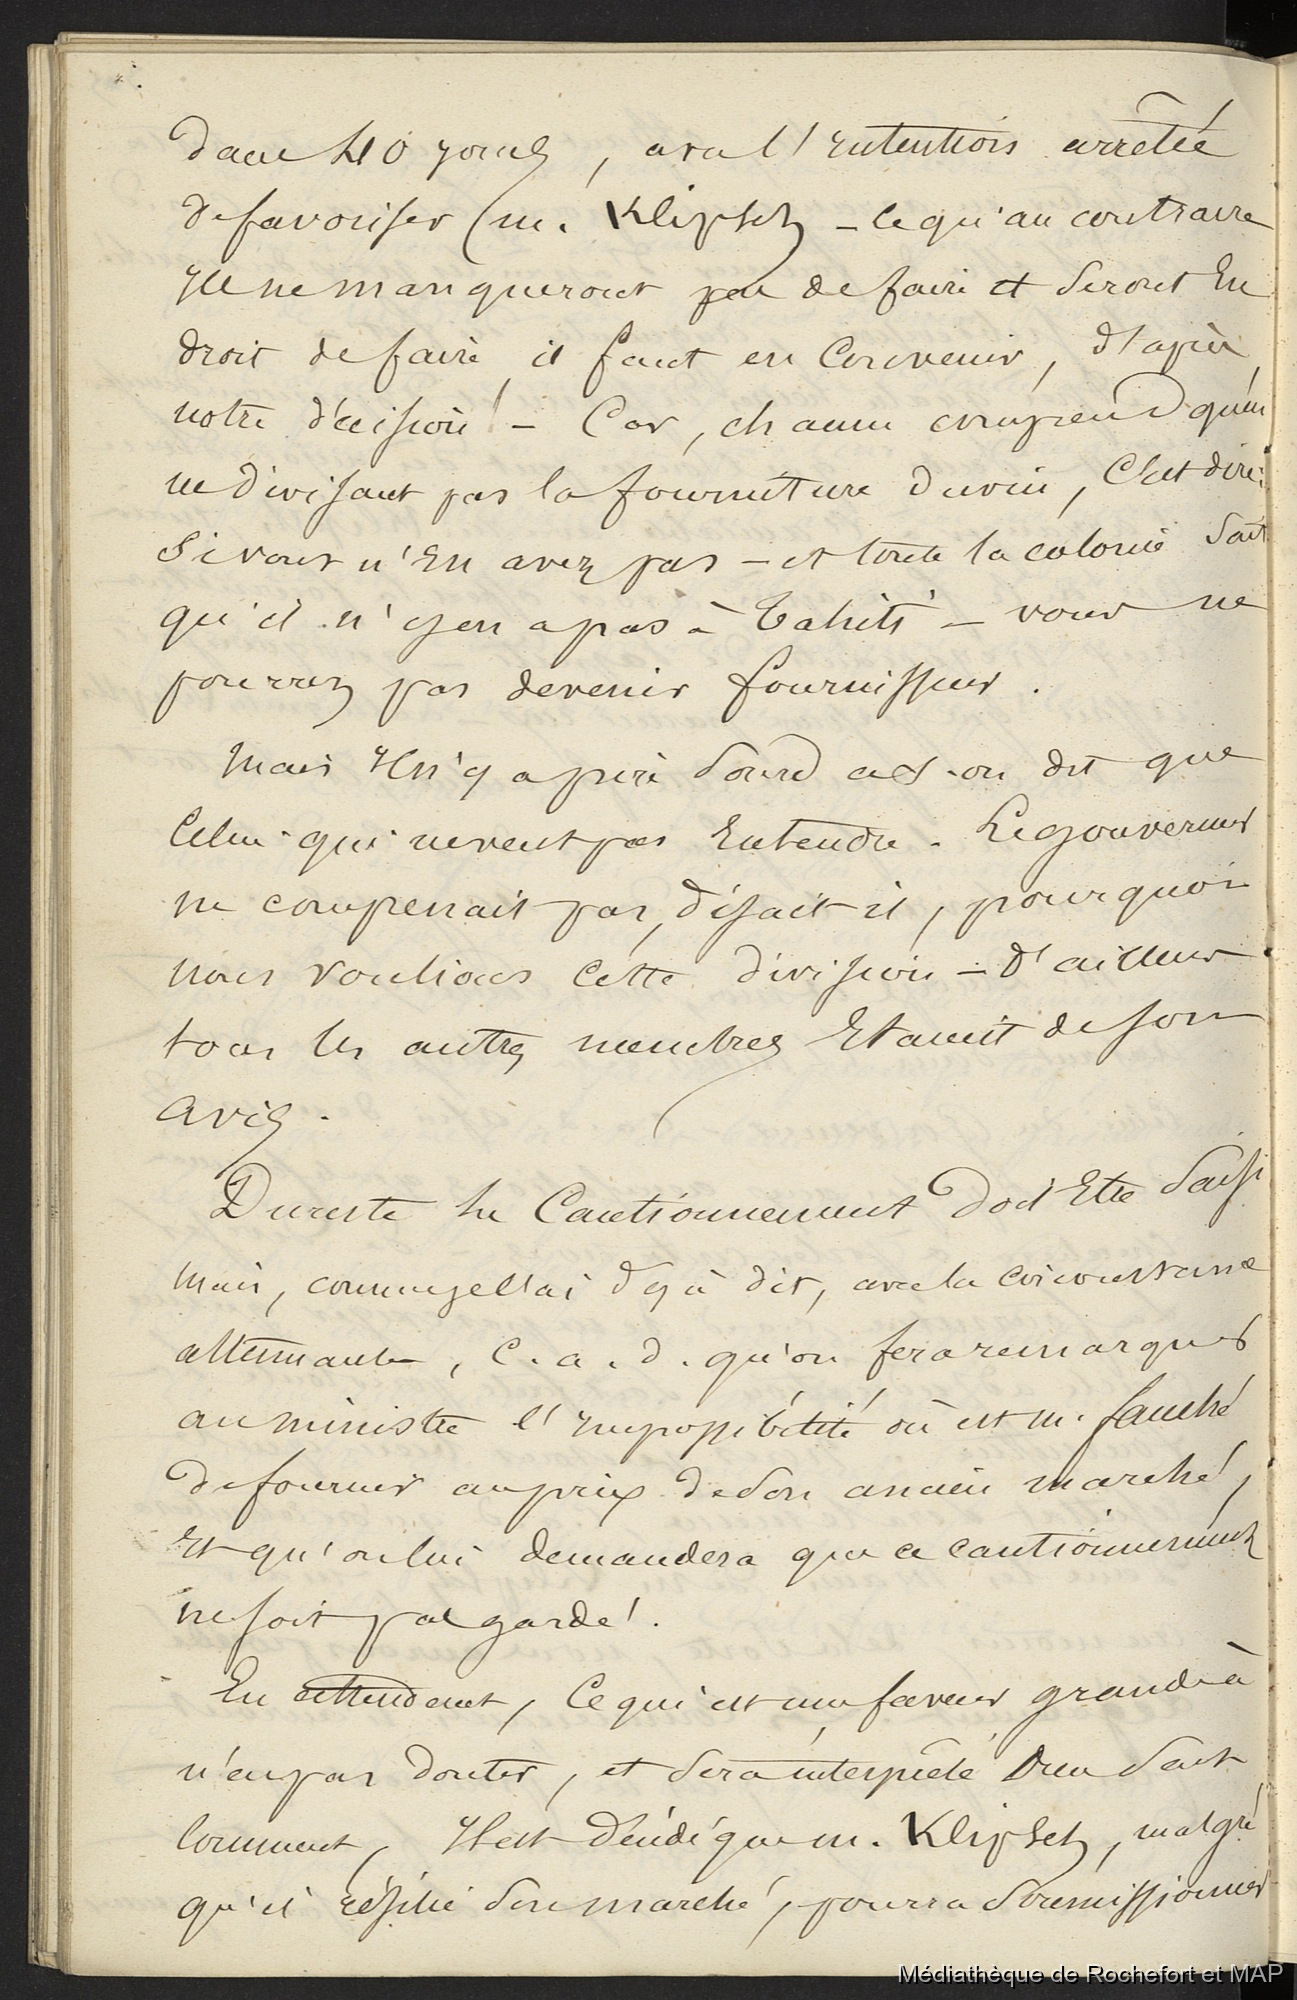 dans 40 jours, avec l'intention arrêtée
de favoriser (m. Klipfel – ce qu'au contraire
Ils ne manqueront pas de faire et seront En
droit de faire, il faut en Convenir, d'après
notre décision! – Car, chacun comprend qu'en
ne divisant pas la fourniture du vin, C'est dire:
Si vous n'En avez pas – et toute la colonie Sait
qu'il n'y en a pas à Tahiti – vous ne
pourrez pas devenir fournisseur.
Mais Il n'y a pire Sourd a-t-on dit que
Celui qui ne veut pas Entendre. Le gouverneur
ne comprenait pas, disait-il, pourquoi
nous voulions cette division – D'ailleurs
tous les autres membres Etaient de son
avis.
Du reste le Cautionnement doit Etre Saisi
Mais, comme je l'ai déjà dit, avec la circonstance
atténuante, c. a. d. qu'on fera remarquer
au ministre l'impossibilité où est m. fauché
de fournir au prix de son ancien marché,
Et qu'on lui demandera que ce cautionnement
ne soit pas gardé!.
En attendant, Ce qui est une faveur grande à
n'en pas douter, et sera interprêté Dieu Sait
Comment, Il est décidé que m. Klipfel, malgré
qu'il résilie son marché, pourra soumissionner
Médiathèque de Rochefort et MAP